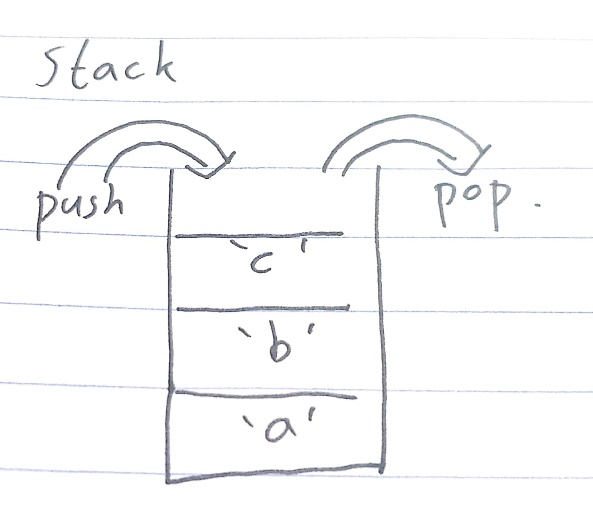 Stack
push
pop.
`c'
`b'
`a'